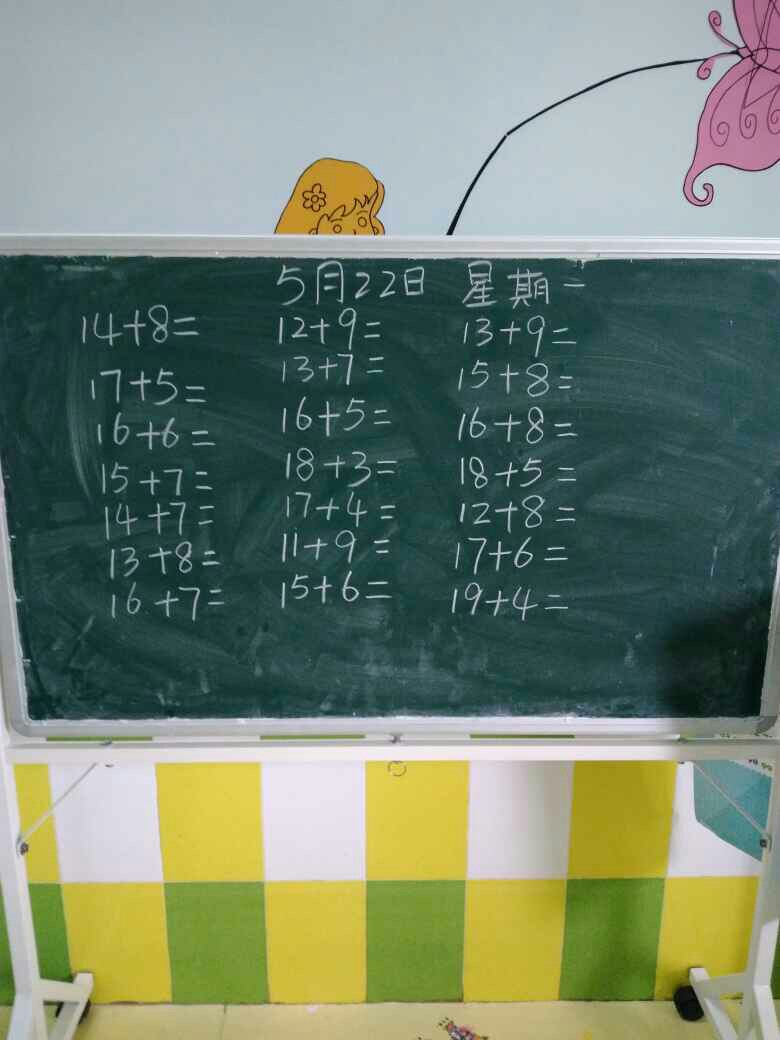 5月22日 星期一
14+8= 12+9= 13+9=
17+5= 13+7= 15+8=
16+6= 16+5= 16+8=
15+7= 18+3= 18+5=
14+7= 17+4= 12+8=
13+8= 11+9= 17+6=
16+7= 15+6= 19+4=